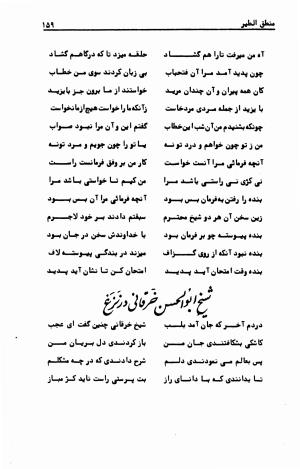 منطق الطیر
۱۵۹
آه من میرفت تارا هم گشاد
حلقه میزد تا که درگاهم گشاد
چون پدید آمد مرا آن فتحباب
بی زبان کردند سوی من خطاب
کان همه پیران و آن چندان مرید
خواستند از ما برون جز بایزید
با یزید از جمله مردی مردخاست
زآنکه ما را خواست هیچ از ما نخواست
چونکه بشنیدم من آن شب این خطاب
گفتم این و آن مرا نبود صواب
من ز تو چون خواهم و درد تو نه
یا تو را چون جویم و مرد تو نه
آنچه فرمائی مرا آنست خواست
کار من بر وفق فرمانست راست
نی کژی نی راستی باشد مرا
من کیم تا خواستی باشد مرا
بنده را رفتن بفرمان بس بود
آنچه فرمائی مرا آن بس بود
زین سخن آن هر دو شیخ محترم
سبقتم دادند بر خود لاجرم
بنده پیوسته چو بر فرمان بود
با خداوندش سخن در جان بود
بنده نبود آنکه از روی گزاف
میزند در بندگی پیوسته لاف
بنده وقت امتحان آید پدید
امتحان کن تا نشان آید پدید
شیخ ابوالحسن خرقانی در نزع
دردم آخر که جان آمد بلب
شیخ خرقانی چنین گفت ای عجب
کاشکی بشکافتندی جان من
باز کردندی دل بریان من
پس بعالم می نمودندی دلم
شرح دادندی که در چه مشکلم
تا بدانندی که با دانای راز
بت پرستی راست ناید کژ مباز